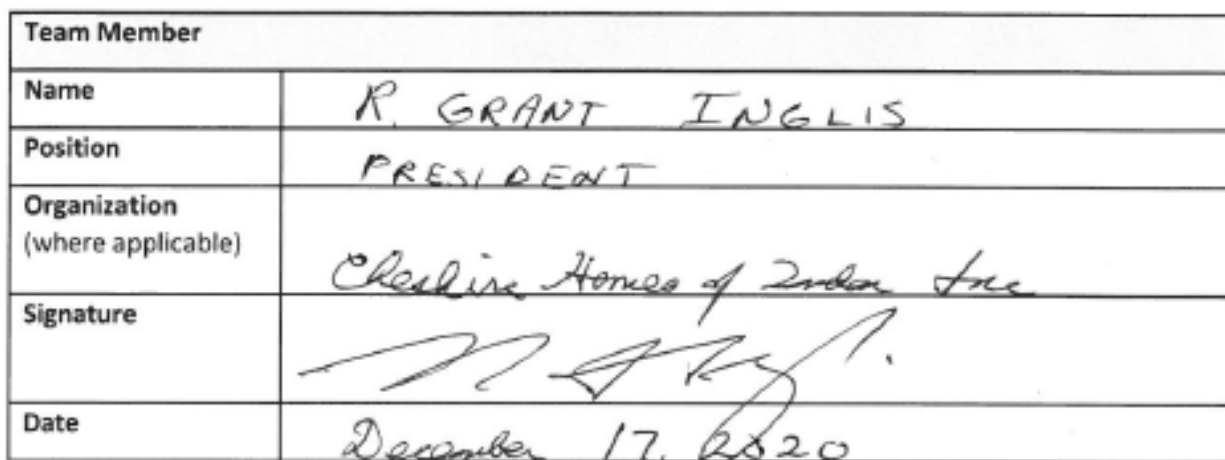 Team Member
Name R. GRANT INGLIS
Position PRESIDENT
Organization
(where applicable)
Cheshire Homes of London Inc
Signature
Date December 17, 2020